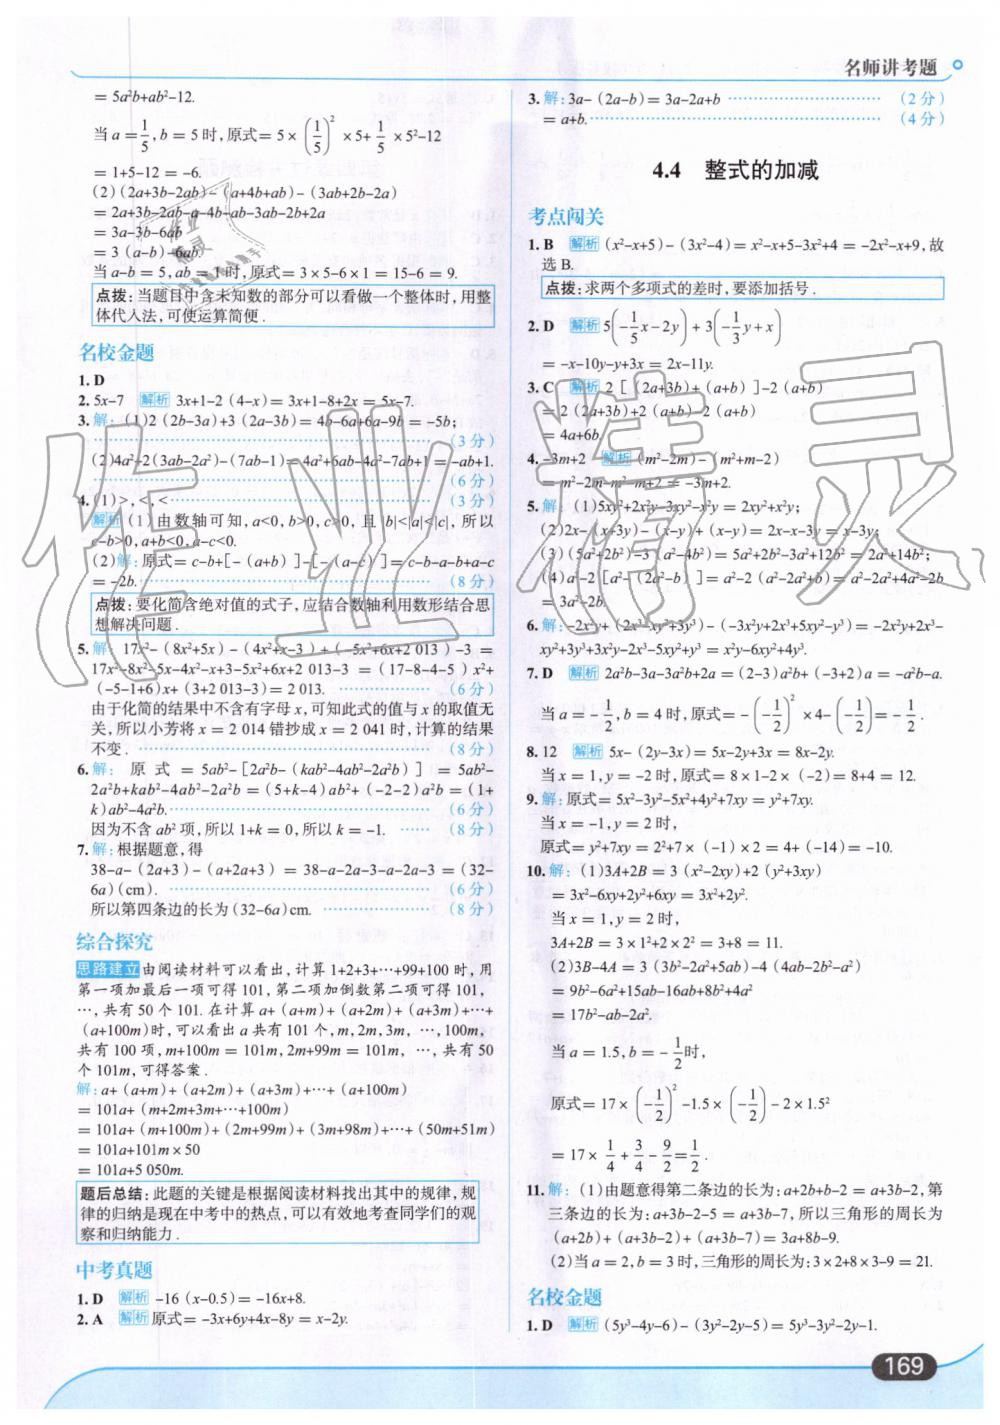 名师讲考题
= 5a²b+ab²-12.
当 a = 1/5, b = 5 时, 原式 = 5 × (1/5)² × 5+ 1/5 × 5²-12
= 1+5-12 = -6.
(2) (2a+3b-2ab) - (a+4b+ab) - (3ab+2b-2a)
= 2a+3b-2ab-a-4b-ab-3ab-2b+2a
= 3a-3b-6ab
= 3 (a-b) -6ab.
当 a-b = 5, ab = 1 时, 原式 = 3 × 5-6 × 1 = 15-6 = 9.
点拨: 当题目中含未知数的部分可以看做一个整体时, 用整
体代入法, 可使运算简便.
名校金题
1. D
2. 5x-7 解析 3x+1-2 (4-x) = 3x+1-8+2x = 5x-7.
3. 解: (1)2 (2b-3a)+3 (2a-3b) = 4b-6a+6a-9b = -5b;
(3 分)
(2)4a²+2(3ab-2a²)-(7ab-1)= 4a²+6ab-4a²-7ab+1 = -ab+1.
(6 分)
4. (1) >, <, < (3 分)
解析 (1) 由数轴可知, a<0, b>0, c>0, 且 |b|<|a|<|c|, 所以
c-b>0, a+b<0, a-c<0.
(2) 解: 原式 = c-b+[- (a+b) ]-[- (a-c) ] = c-b-a-b+a-c
= -2b. (8 分)
点拨: 要化简含绝对值的式子, 应结合数轴利用数形结合思
想解决问题.
5. 解: 17x²- (8x²+5x) - (4x²+x-3) + (-5x²+6x+2 013) -3 =
17x²-8x²-5x-4x²-x+3-5x²+6x+2 013-3 = (17-8-4-5) x²+
(-5-1+6)x+ (3+2 013-3) = 2 013. (6 分)
由于化简的结果中不含有字母 x, 可知此式的值与 x 的取值无
关, 所以小芳将 x = 2 014 错抄成 x = 2 041 时, 计算的结果
不变. (8 分)
6. 解: 原式 = 5ab²- [2a²b- (kab²-4ab²-2a²b) ] = 5ab²-
2a²b+kab²-4ab²-2a²b = (5+k-4) ab²+ (-2-2) a²b = (1+
k) ab²-4a²b. (6 分)
因为不含 ab² 项, 所以 1+k = 0, 所以 k = -1. (8 分)
7. 解: 根据题意, 得
38-a- (2a+3) - (a+2a+3) = 38-a-2a-3-a-2a-3 = (32-
6a) (cm). (6 分)
所以第四条边的长为 (32-6a) cm. (8 分)
综合探究
思路建立 由阅读材料可以看出, 计算 1+2+3+…+99+100 时, 用
第一项加最后一项可得 101, 第二项加倒数第二项可得 101,
…, 共有 50 个 101. 在计算 a+ (a+m) + (a+2m) + (a+3m) +…+
(a+100m) 时, 可以看出 a 共有 101 个, m, 2m, 3m, …, 100m,
共有 100 项, m+100m = 101m, 2m+99m = 101m, …, 共有 50
个 101m, 可得答案.
解: a+ (a+m) + (a+2m) + (a+3m) +…+ (a+100m)
= 101a+ (m+2m+3m+…+100m)
= 101a+ (m+100m) + (2m+99m) + (3m+98m) +…+ (50m+51m)
= 101a+101m × 50
= 101a+5 050m.
题后总结: 此题的关键是根据阅读材料找出其中的规律, 规
律的归纳是现在中考中的热点, 可以有效地考查同学们的观
察和归纳能力.
中考真题
1. D 解析 -16 (x-0.5) = -16x+8.
2. A 解析 原式 = -3x+6y+4x-8y = x-2y.
3. 解: 3a- (2a-b) = 3a-2a+b (2 分)
= a+b. (4 分)
4.4 整式的加减
考点闯关
1. B 解析 (x²-x+5) - (3x²-4) = x²-x+5-3x²+4 = -2x²-x+9, 故
选 B.
点拨: 求两个多项式的差时, 要添加括号.
2. D 解析 5(-1/5 x-2y) + 3(-1/3 y+x)
= -x-10y-y+3x = 2x-11y.
3. C 解析 2 [ (2a+3b) + (a+b) ]-2 (a+b)
= 2 (2a+3b) +2 (a+b) -2 (a+b)
= 4a+6b.
4. -3m+2 解析 (m²-2m) - (m²+m-2)
= m²-2m-m²-m+2 = -3m+2.
5. 解: (1)5xy²+2x²y-3xy²-x²y = 2xy²+x²y;
(2)2x- (x+3y) - (x-y) + (x-y) = 2x-x-3y = x-3y;
(3) (5a²+2b²) -3 (a²-4b²) = 5a²+2b²-3a²+12b² = 2a²+14b²;
(4)a²-2 [a²- (2a²-b) ] = a²-2 (a²-2a²+b) = a²-2a²+4a²-2b
= 3a²-2b.
6. 解: -2x²y+ (2x³-xy²+3y³) - (-3x²y+2x³+5xy²-y³) = -2x²y+2x³-
xy²+3y³+3x²y-2x³-5xy²+y³ = x²y-6xy²+4y³.
7. D 解析 2a²b-3a-3a²b+2a = (2-3) a²b+ (-3+2) a = -a²b-a.
当 a = -1/2, b = 4 时, 原式 = -(-1/2)² × 4-(-1/2) = -1/2.
8. 12 解析 5x- (2y-3x) = 5x-2y+3x = 8x-2y.
当 x = 1, y = -2 时, 原式 = 8 × 1-2 × (-2) = 8+4 = 12.
9. 解: 原式 = 5x²-3y²-5x²+4y²+7xy = y²+7xy.
当 x = -1, y = 2 时,
原式 = y²+7xy = 2²+7 × (-1) × 2 = 4+ (-14) = -10.
10. 解: (1)3A+2B = 3 (x²-2xy) +2 (y²+3xy)
= 3x²-6xy+2y²+6xy = 3x²+2y².
当 x = 1, y = 2 时,
3A+2B = 3 × 1²+2 × 2² = 3+8 = 11.
(2)3B-4A = 3 (3b²-2a²+5ab) -4 (4ab-2b²-a²)
= 9b²-6a²+15ab-16ab+8b²+4a²
= 17b²-ab-2a².
当 a = 1.5, b = -1/2 时,
原式 = 17 × (-1/2)² -1.5 × (-1/2) -2 × 1.5²
= 17 × 1/4 + 3/4 - 9/2 = 1/2.
11. 解: (1) 由题意得第二条边的长为: a+2b+b-2 = a+3b-2, 第
三条边的长为: a+3b-2-5 = a+3b-7, 所以三角形的周长为
(a+2b) + (a+3b-2) + (a+3b-7) = 3a+8b-9.
(2) 当 a = 2, b = 3 时, 三角形的周长为: 3 × 2+8 × 3-9 = 21.
名校金题
1. D 解析 (5y³-4y-6) - (3y²-2y-5) = 5y³-3y²-2y-1.
169
作业精灵